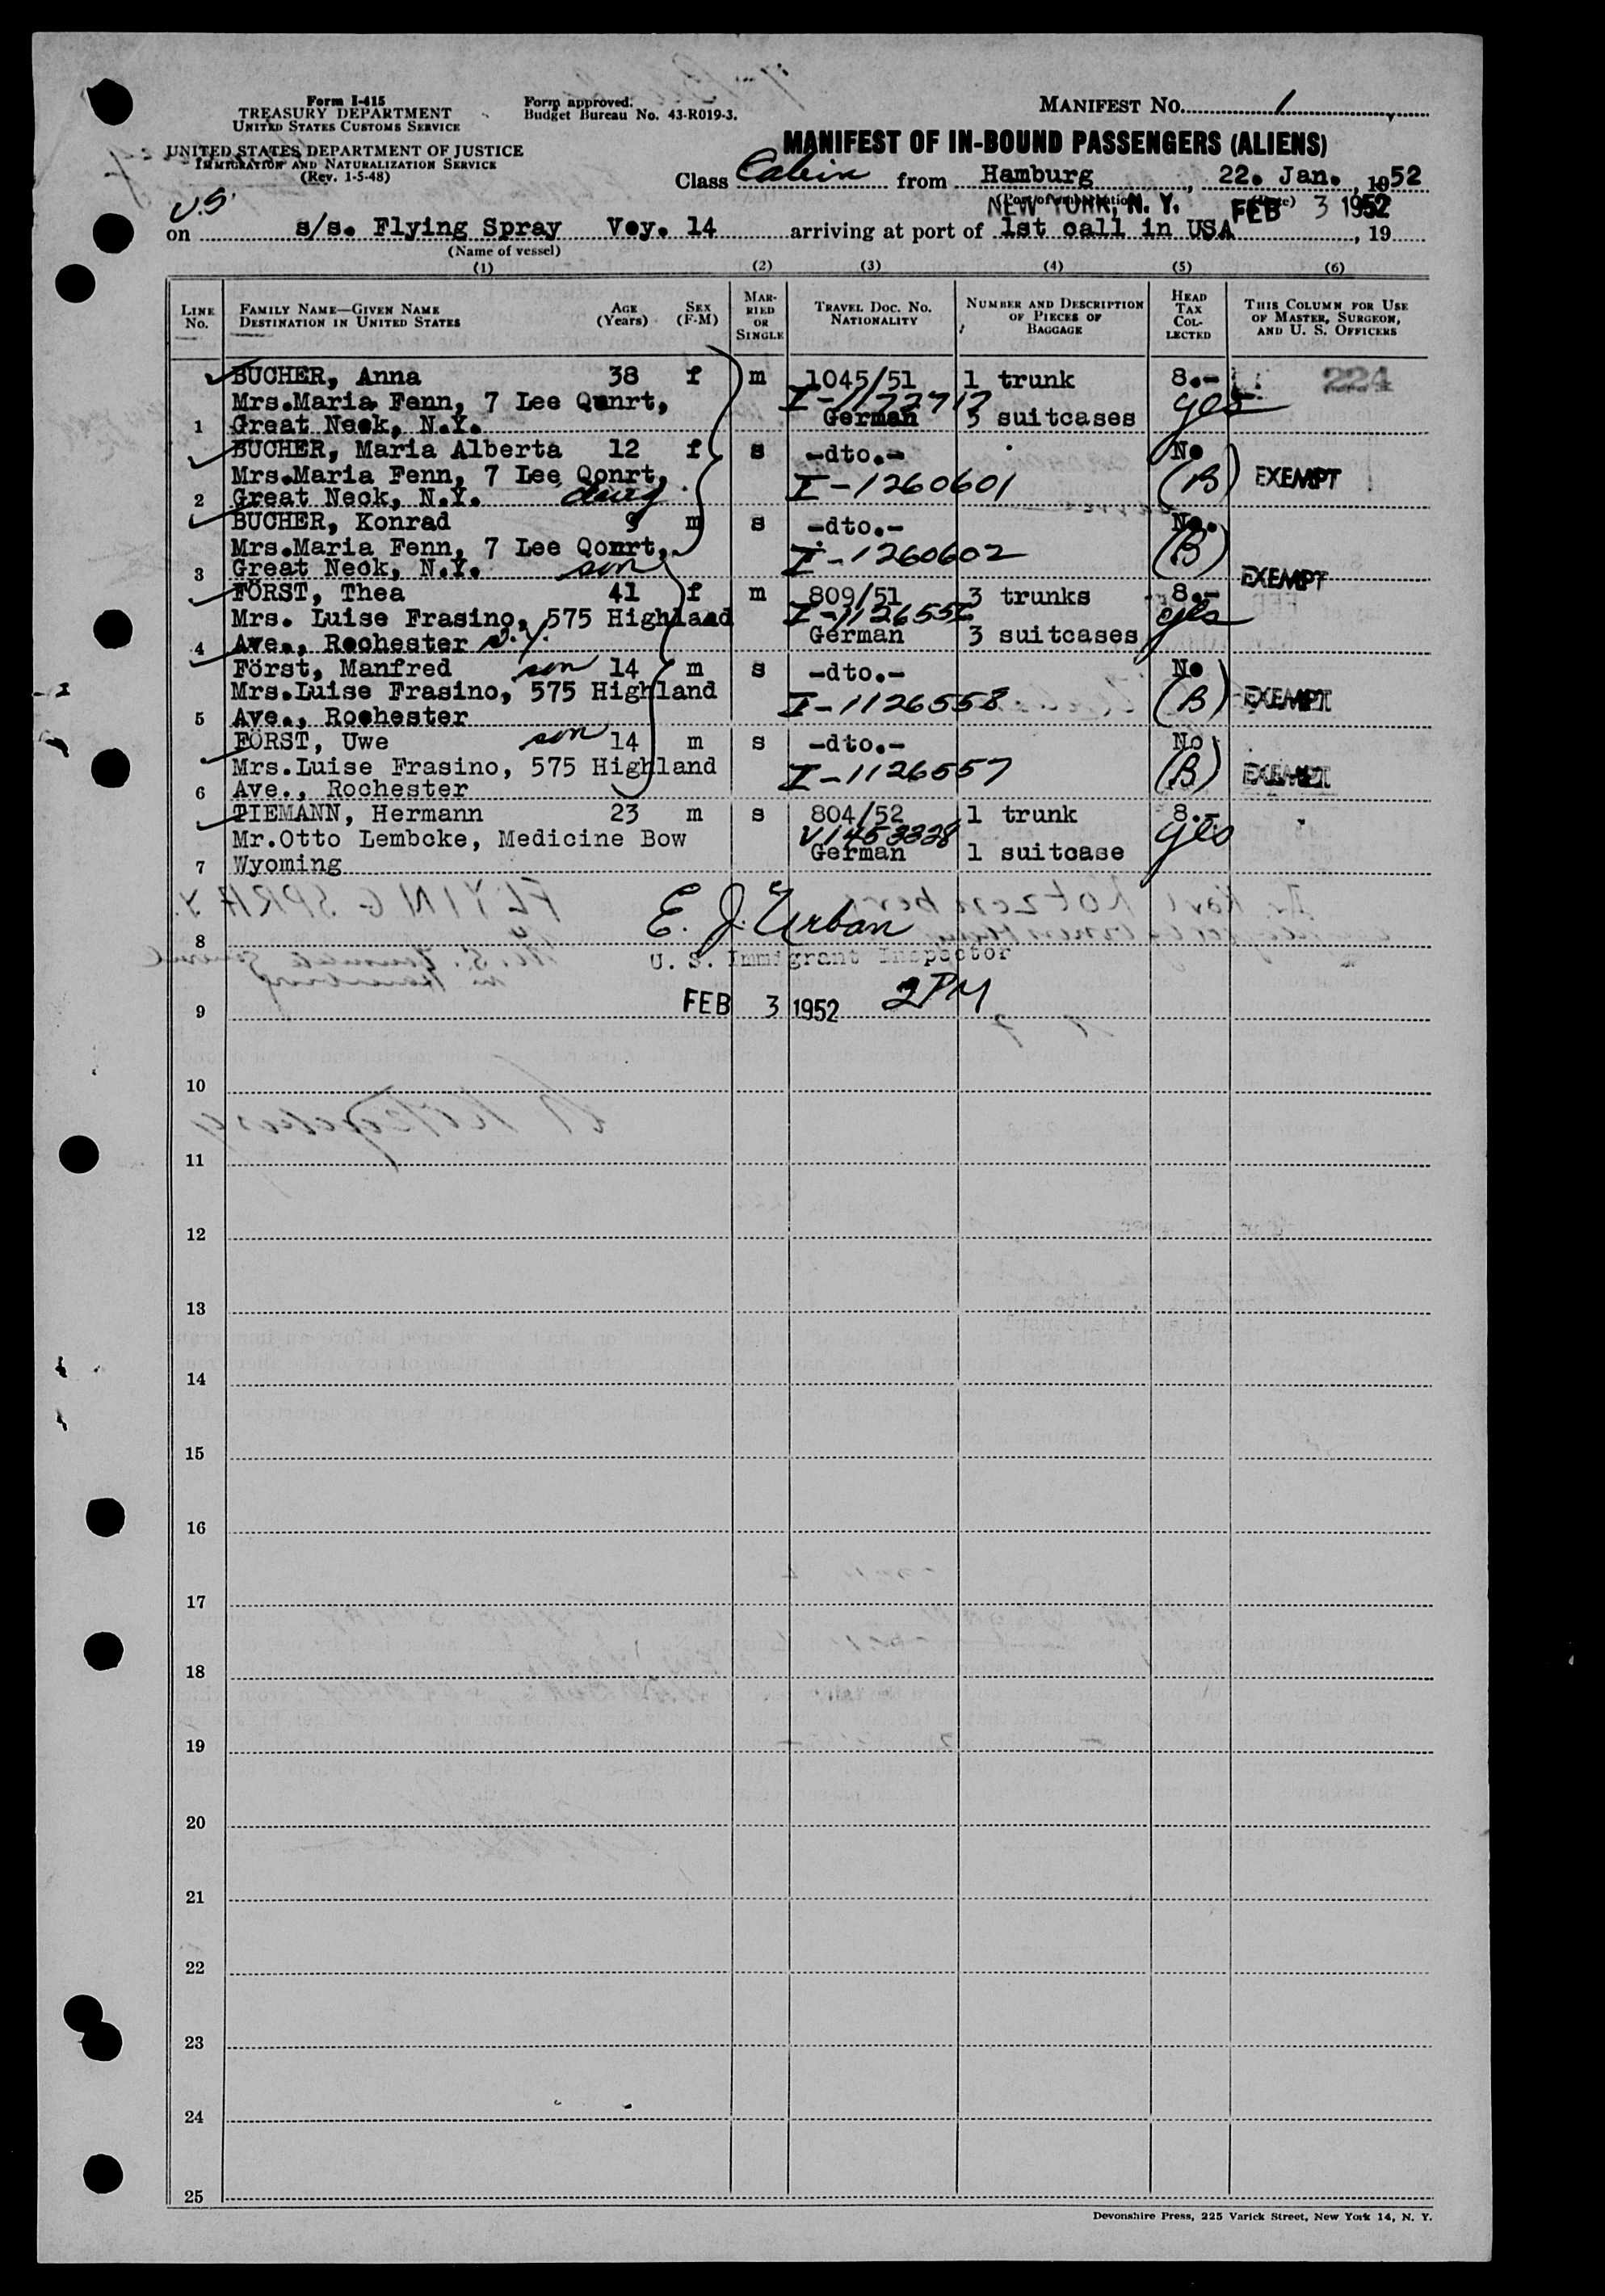 Form I-415
TREASURY DEPARTMENT
UNITED STATES CUSTOMS SERVICE
UNITED STATES DEPARTMENT OF JUSTICE
IMMIGRATION AND NATURALIZATION SERVICE
(Rev. 1-5-48)
Form approved.
Budget Bureau No. 43-R019-3.
MANIFEST No. 1
MANIFEST OF IN-BOUND PASSENGERS (ALIENS)
Class Cabin from Hamburg, 22. Jan., 1952
NEW YORK, N. Y. FEB 3 1952
U.S.
on s/s. Flying Spray Voy. 14 arriving at port of 1st call in USA, 19
(Name of vessel)
(1) (2) (3) (4) (5) (6)
LINE No. FAMILY NAME—GIVEN NAME DESTINATION IN UNITED STATES AGE (Years) SEX (F-M) MARRIED OR SINGLE TRAVEL DOC. NO. NATIONALITY NUMBER AND DESCRIPTION OF PIECES OF BAGGAGE HEAD TAX COLLECTED THIS COLUMN FOR USE OF MASTER, SURGEON, AND U. S. OFFICERS
BUCHER, Anna 38 f m 1045/51 1 trunk 8.- 224
Mrs.Maria Fenn, 7 Lee Qunrt, yes
1 Great Neck, N.Y. German 3 suitcases
BUCHER, Maria Alberta 12 f s -dto.- No
Mrs.Maria Fenn, 7 Lee Qonrt, I-1260601 (B) EXEMPT
2 Great Neck, N.Y. daug
BUCHER, Konrad 9 m s -dto.- No.
Mrs.Maria Fenn, 7 Lee Qonrt, I-1260602 (B)
3 Great Neck, N.Y. son EXEMPT
FÖRST, Thea 41 f m 809/51 3 trunks 8.-
Mrs. Luise Frasino, 575 Highland I-1126556 yes
4 Ave., Rochester N.Y. German 3 suitcases
Först, Manfred son 14 m s -dto.- No
Mrs.Luise Frasino, 575 Highland I-1126558 (B) EXEMPT
5 Ave., Rochester
FÖRST, Uwe son 14 m s -dto.- No
Mrs.Luise Frasino, 575 Highland I-1126557 (B) EXEMPT
6 Ave., Rochester
TIEMANN, Hermann 23 m s 804/52 1 trunk 8.-
Mr.Otto Lembcke, Medicine Bow V1453328 yes
7 Wyoming German 1 suitcase
E. J. Urban
8
U. S. Immigrant Inspector
FEB 3 1952 2PM
9
10
11
12
13
14
15
16
17
18
19
20
21
22
23
24
25
Devonshire Press, 225 Varick Street, New York 14, N. Y.